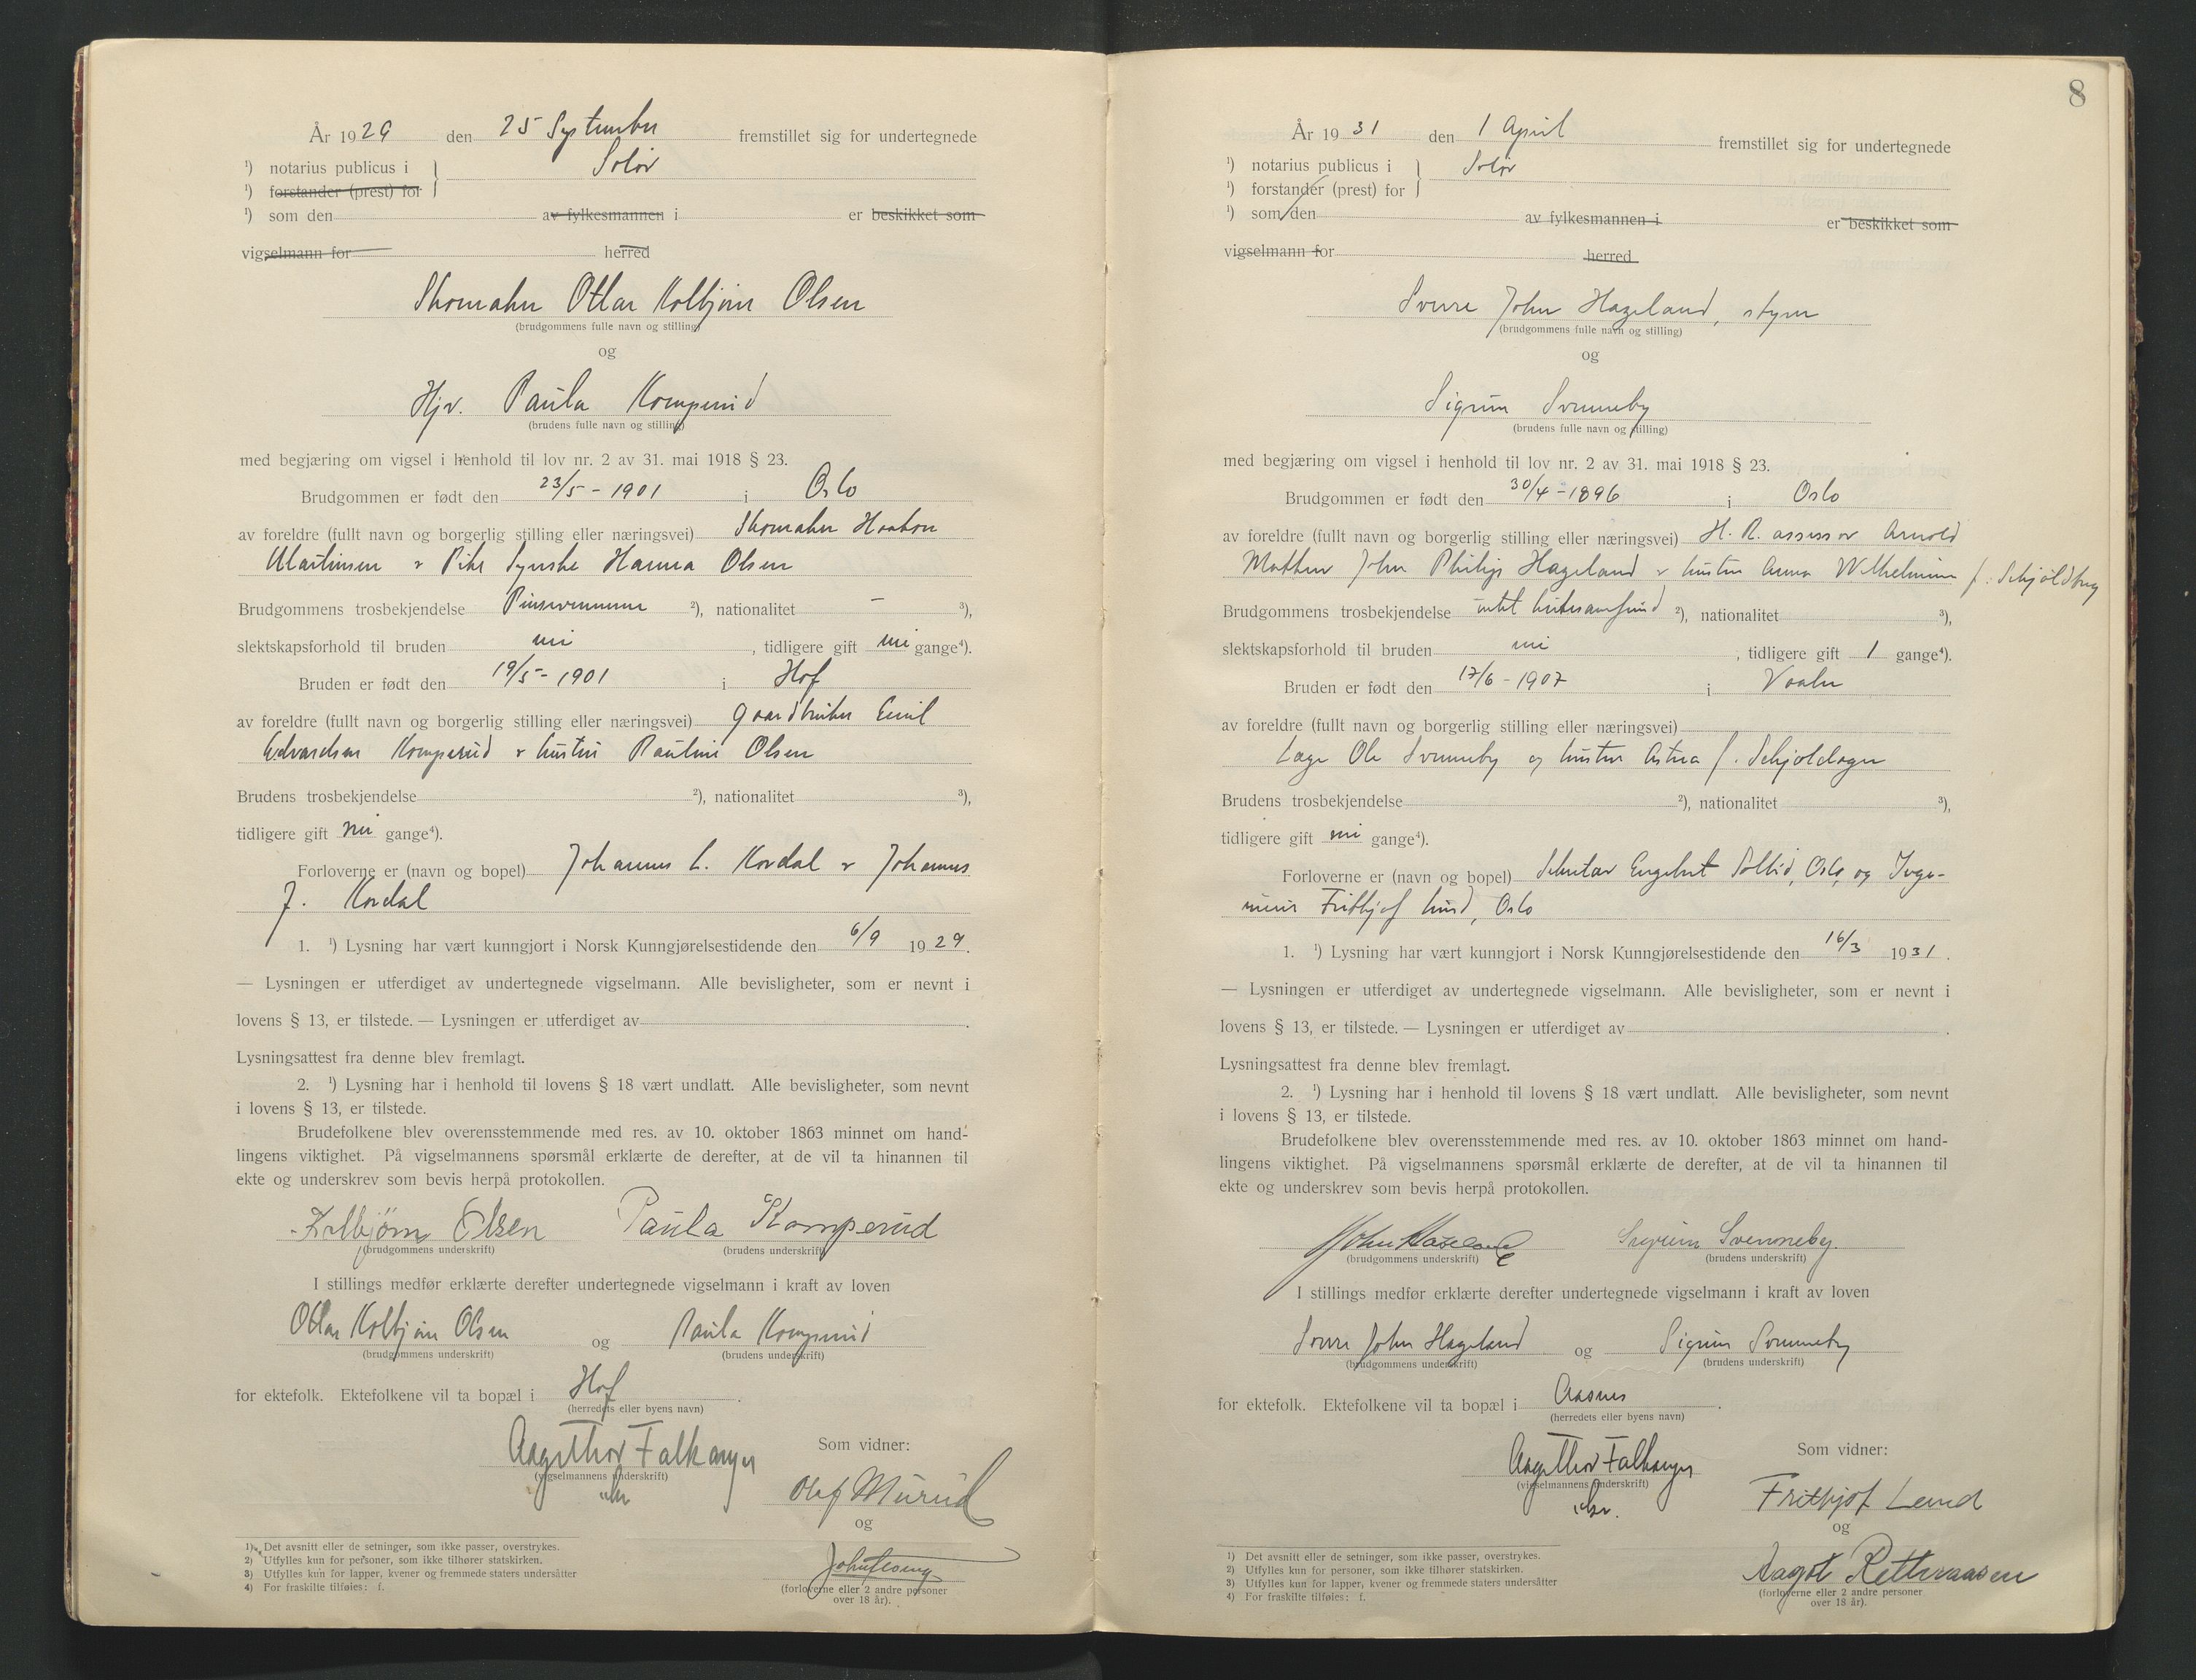 År 1929 den 25 September fremstillet sig for undertegnede
1) notarius publicus i Solør
1) forstander (prest) for
1) som den av fylkesmannen i er beskikket som
vigselmann for herred
Skomaker Ottar Kolbjørn Olsen
(brudgommens fulle navn og stilling)
og
Hjv. Paula Komperud
(brudens fulle navn og stilling)
med begjæring om vigsel i henhold til lov nr. 2 av 31. mai 1918 § 23.
Brudgommen er født den 23/5 - 1901 i Oslo
av foreldre (fullt navn og borgerlig stilling eller næringsvei) Skomaker Haakon
Martinsen & Pike Hanna Olsen
Brudgommens trosbekjendelse Pinsevennene 2), nationalitet - 3),
slektskapsforhold til bruden nei, tidligere gift nei gange4).
Bruden er født den 19/5 - 1901 i Hof
av foreldre (fullt navn og borgerlig stilling eller næringsvei) gaardbruker Emil
Edvardsen Komperud & hustru Pauline Olsen
Brudens trosbekjendelse 2), nationalitet 3),
tidligere gift nei gange4).
Forloverne er (navn og bopel) Johannes L. Kordal & Johannes
J. Kordal
1. 1) Lysning har vært kunngjort i Norsk Kunngjørelsestidende den 6/9 1929.
— Lysningen er utferdiget av undertegnede vigselmann. Alle bevisligheter, som er nevnt i
lovens § 13, er tilstede. — Lysningen er utferdiget av .
Lysningsattest fra denne blev fremlagt.
2. 1) Lysning har i henhold til lovens § 18 vært undlatt. Alle bevisligheter, som nevnt
i lovens § 13, er tilstede.
Brudefolkene blev overensstemmende med res. av 10. oktober 1863 minnet om hand-
lingens viktighet. På vigselmannens spørsmål erklærte de derefter, at de vil ta hinannen til
ekte og underskrev som bevis herpå protokollen.
Kolbjørn Olsen Paula Komperud
(brudgommens underskrift) (brudens underskrift)
I stillings medfør erklærte derefter undertegnede vigselmann i kraft av loven
Ottar Kolbjørn Olsen og Paula Komperud
(brudgommens underskrift) (brudens underskrift)
for ektefolk. Ektefolkene vil ta bopæl i Hof.
(herredets eller byens navn)
Aage Thor Falkanger
(vigselmannens underskrift)
Som vidner:
Olaf Murud
og
(forloverne eller 2 andre personer
over 18 år).
1) Det avsnitt eller de setninger, som ikke passer, overstrykes.
2) Utfylles kun for personer, som ikke tilhører statskirken.
3) Utfylles kun for lapper, kvener og fremmede staters undersåtter
4) For fraskilte tilføies: f.
8
År 1931 den 1 April fremstillet sig for undertegnede
1) notarius publicus i Solør
1) forstander (prest) for
1) som den av fylkesmannen i er beskikket som
vigselmann for herred
Sverre John Hazeland, styrer
(brudgommens fulle navn og stilling)
og
Sigrun Svenneby
(brudens fulle navn og stilling)
med begjæring om vigsel i henhold til lov nr. 2 av 31. mai 1918 § 23.
Brudgommen er født den 30/4 - 1896 i Oslo
av foreldre (fullt navn og borgerlig stilling eller næringsvei) H. R. assessor Arnold
John Philip Hazeland & hustru Anna Wilhelmine f. Schjoldborg
Brudgommens trosbekjendelse intet 2), nationalitet 3),
slektskapsforhold til bruden nei, tidligere gift 1 gange4).
Bruden er født den 17/6 - 1907 i Vaaler
av foreldre (fullt navn og borgerlig stilling eller næringsvei)
Læge Ole Svenneby og hustru Astrea f. Schjoldager
Brudens trosbekjendelse 2), nationalitet 3),
tidligere gift nei gange4).
Forloverne er (navn og bopel) Sekretær Engebret Solli, Oslo, og Inge-
niør Fritjof Lund, Oslo
1. 1) Lysning har vært kunngjort i Norsk Kunngjørelsestidende den 16/3 1931.
— Lysningen er utferdiget av undertegnede vigselmann. Alle bevisligheter, som er nevnt i
lovens § 13, er tilstede. — Lysningen er utferdiget av .
Lysningsattest fra denne blev fremlagt.
2. 1) Lysning har i henhold til lovens § 18 vært undlatt. Alle bevisligheter, som nevnt
i lovens § 13, er tilstede.
Brudefolkene blev overensstemmende med res. av 10. oktober 1863 minnet om hand-
lingens viktighet. På vigselmannens spørsmål erklærte de derefter, at de vil ta hinannen til
ekte og underskrev som bevis herpå protokollen.
John Hazeland Sigrun Svenneby.
(brudgommens underskrift) (brudens underskrift)
I stillings medfør erklærte derefter undertegnede vigselmann i kraft av loven
Sverre John Hazeland og Sigrun Svenneby
(brudgommens underskrift) (brudens underskrift)
for ektefolk. Ektefolkene vil ta bopæl i Aasnes.
(herredets eller byens navn)
Aage Thor Falkanger
(vigselmannens underskrift)
Som vidner:
Frithjof Lund
og
Aagot Rettvaasen
(forloverne eller 2 andre personer
over 18 år).
1) Det avsnitt eller de setninger, som ikke passer, overstrykes.
2) Utfylles kun for personer, som ikke tilhører statskirken.
3) Utfylles kun for lapper, kvener og fremmede staters undersåtter
4) For fraskilte tilføies: f.